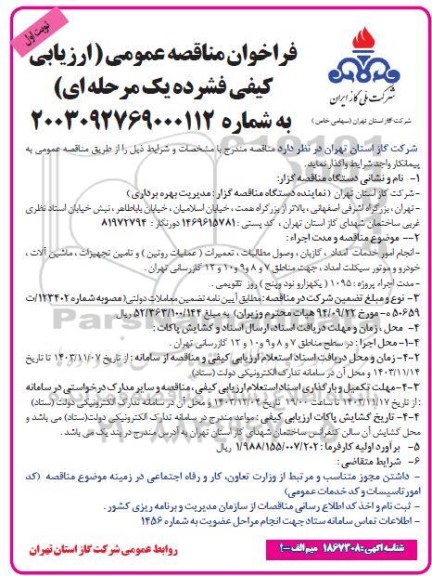 نوبت اول
فراخوان مناقصه عمومی (ارزیابی
کیفی فشرده یک مرحله ای)
به شماره ۲۰۰۳۰۹۲۷۶۹۰۰۰۱۱۲
شرکت ملی گاز ایران
شرکت گاز استان تهران (سهامی خاص)
شرکت گاز استان تهران در نظر دارد مناقصه مندرج با مشخصات و شرایط ذیل را از طریق مناقصه عمومی به
پیمانکار واجد شرایط واگذار نماید.
۱- نام و نشانی دستگاه مناقصه گزار:
- شرکت گاز استان تهران (نماینده دستگاه مناقصه گزار: مدیریت بهره برداری)
- تهران، بزرگراه اشرفی اصفهانی، بالاتر از بزرگراه همت، خیابان اسلامیان، خیابان باباطاهر، نبش خیابان استاد نظری
غربی ساختمان شهدای گاز استان تهران، کد پستی: ۱۴۶۹۶۱۵۷۸۱ دورنگار: ۸۱۹۷۲۷۹۴
۲- موضوع مناقصه و مدت اجراء:
- انجام امور خدمات امداد، گازبان، وصول مطالبات، تعمیرات (عملیات روتین) و تامین تجهیزات، ماشین آلات،
خودرو و موتور سیکلت امداد، جهت مناطق ۷ و ۸ و ۹ و ۱۰ و ۱۲ گازرسانی تهران.
- مدت اجراء پروژه: ۱۰۹۵ (یکهزار و نود وپنج) روز تقویمی.
۳- نوع و مبلغ تضمین شرکت در مناقصه: مطابق آیین نامه تضمین معاملات دولتی (مصوبه شماره ۱۲۳۴۰۲/ت
۵۰۶۵۹ ه مورخ ۹۴/۰۹/۲۲ هیات محترم وزیران) به مبلغ ۵۲/۳۶۳/۱۰۰/۱۴۴ ریال
۴- محل، زمان و مهلت دریافت اسناد، ارسال اسناد و گشایش پاکات:
۴-۱- محل اجرا: در سطح مناطق ۷ و ۸ و ۹ و ۱۰ و ۱۲ گازرسانی تهران.
۴-۲- زمان و محل دریافت اسناد استعلام ارزیابی کیفی و مناقصه از سامانه: از تاریخ ۱۴۰۳/۱۱/۰۷ تا تاریخ
۱۴۰۳/۱۱/۱۴ و محل آن در سامانه تدارک الکترونیکی دولت (ستاد)
۴-۳- مهلت تکمیل و بارگذاری اسناد استعلام ارزیابی کیفی، مناقصه و سایر مدارک درخواستی در سامانه
: از تاریخ ۱۴۰۳/۱۱/۱۷ تا ساعت ۱۹:۰۰ تاریخ ۱۴۰۳/۱۲/۰۲ و محل آن در سامانه تدارک الکترونیکی دولت (ستاد)
۴-۴- تاریخ گشایش پاکات ارزیابی کیفی: مواعد مندرج در سامانه تدارک الکترونیکی دولت(ستاد) می باشد و
محل گشایش آن سالن کنفرانس ساختمان شهدای گاز استان تهران به آدرس مندرج در بند یک می باشد.
۵- برآورد اولیه کارفرما: ۱/۹۸۸/۱۵۵/۰۰۷/۲۰۲ ریال
۶- شرایط متقاضی:
- داشتن مجوز متناسب و مرتبط از وزارت تعاون، کار و رفاه اجتماعی در زمینه موضوع مناقصه (کد
امور تاسیسات و کد خدمات عمومی)
- ثبت نام و اخذ کد اطلاع رسانی مناقصات از سازمان مدیریت و برنامه ریزی کشور.
- اطلاعات تماس سامانه ستاد جهت انجام مراحل عضویت به شماره ۱۴۵۶
شناسه آگهی: ۱۸۶۷۳۰۸ میم الف
روابط عمومی شرکت گاز استان تهران